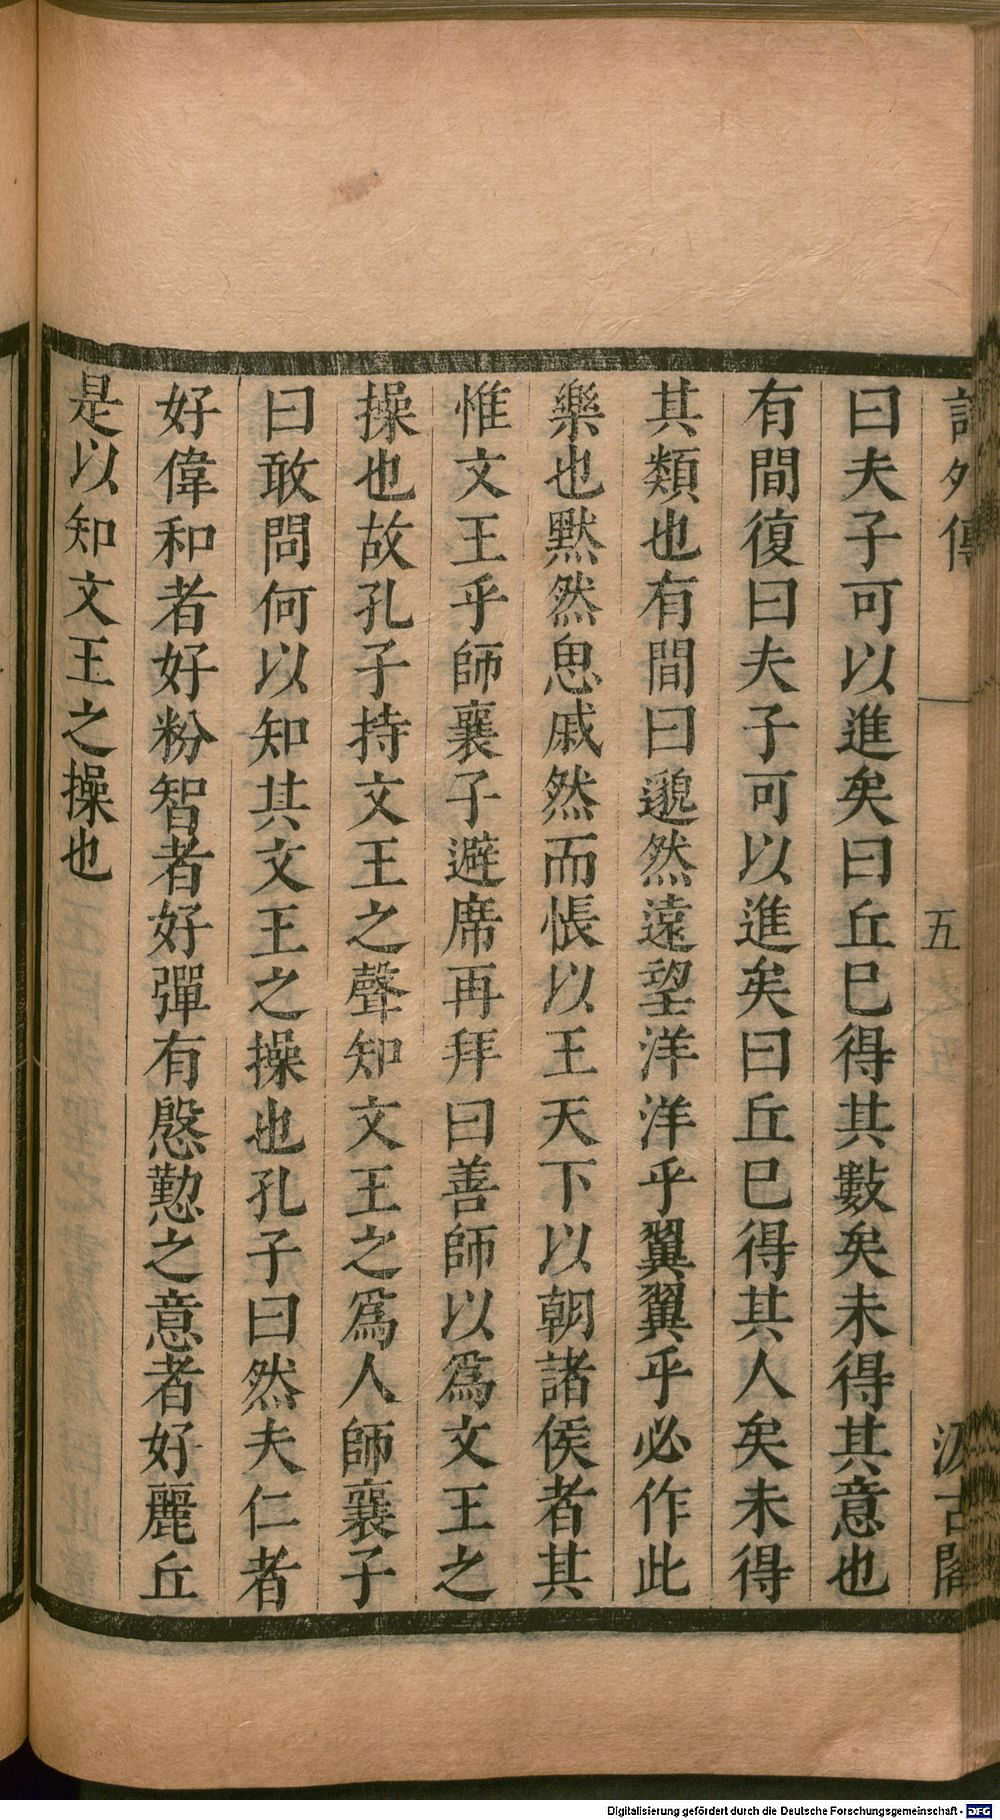 詩外傳
五
汲古閣
曰夫子可以進矣曰丘巳得其數矣未得其意也
有間復曰夫子可以進矣曰丘巳得其人矣未得
其類也有間曰邈然遠望洋洋乎翼翼乎必作此
樂也黙然思戚然而悵以王天下以朝諸侯者其
惟文王乎師襄子避席再拜曰善師以爲文王之
操也故孔子持文王之聲知文王之爲人師襄子
曰敢問何以知其文王之操也孔子曰然夫仁者
好偉和者好粉智者好彈有慇懃之意者好麗丘
是以知文王之操也
Digitalisierung gefördert durch die Deutsche Forschungsgemeinschaft - DFG